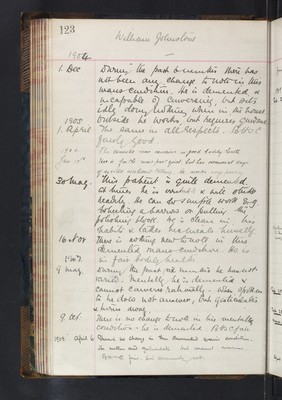 123
William Johnstone
1904
1. Dec During the past 6 months there has
not been any change to note in this
mans condition. He is demented &
incapable of conversing, but sits
idly doing nothing when in the house
outside he works, but requires guidance
1905
1 April The same in all respects. B.H. is
fairly good.
1906
Jan in good bodily health
30 May. This patient is quite demented.
At times he is excitable & will strike
readily. He can do simple work e.g.
wheeling a barrow or pulling the
polishing block. He is clean in his
habits & takes his meals heartily
16 Nov There is nothing new to note in this
demented mans condition. He is
in fair bodily health
1907.
9 May. During the past six months he has not
varied. Mentally he is demented &
cannot converse rationally. When spoken
to he does not answer, but gesticulates
& turns away.
9 Oct. There is no change to note in his mental
condition. he is demented B.H. is fair
1908 April 6 There is no change in this demented man's condition.